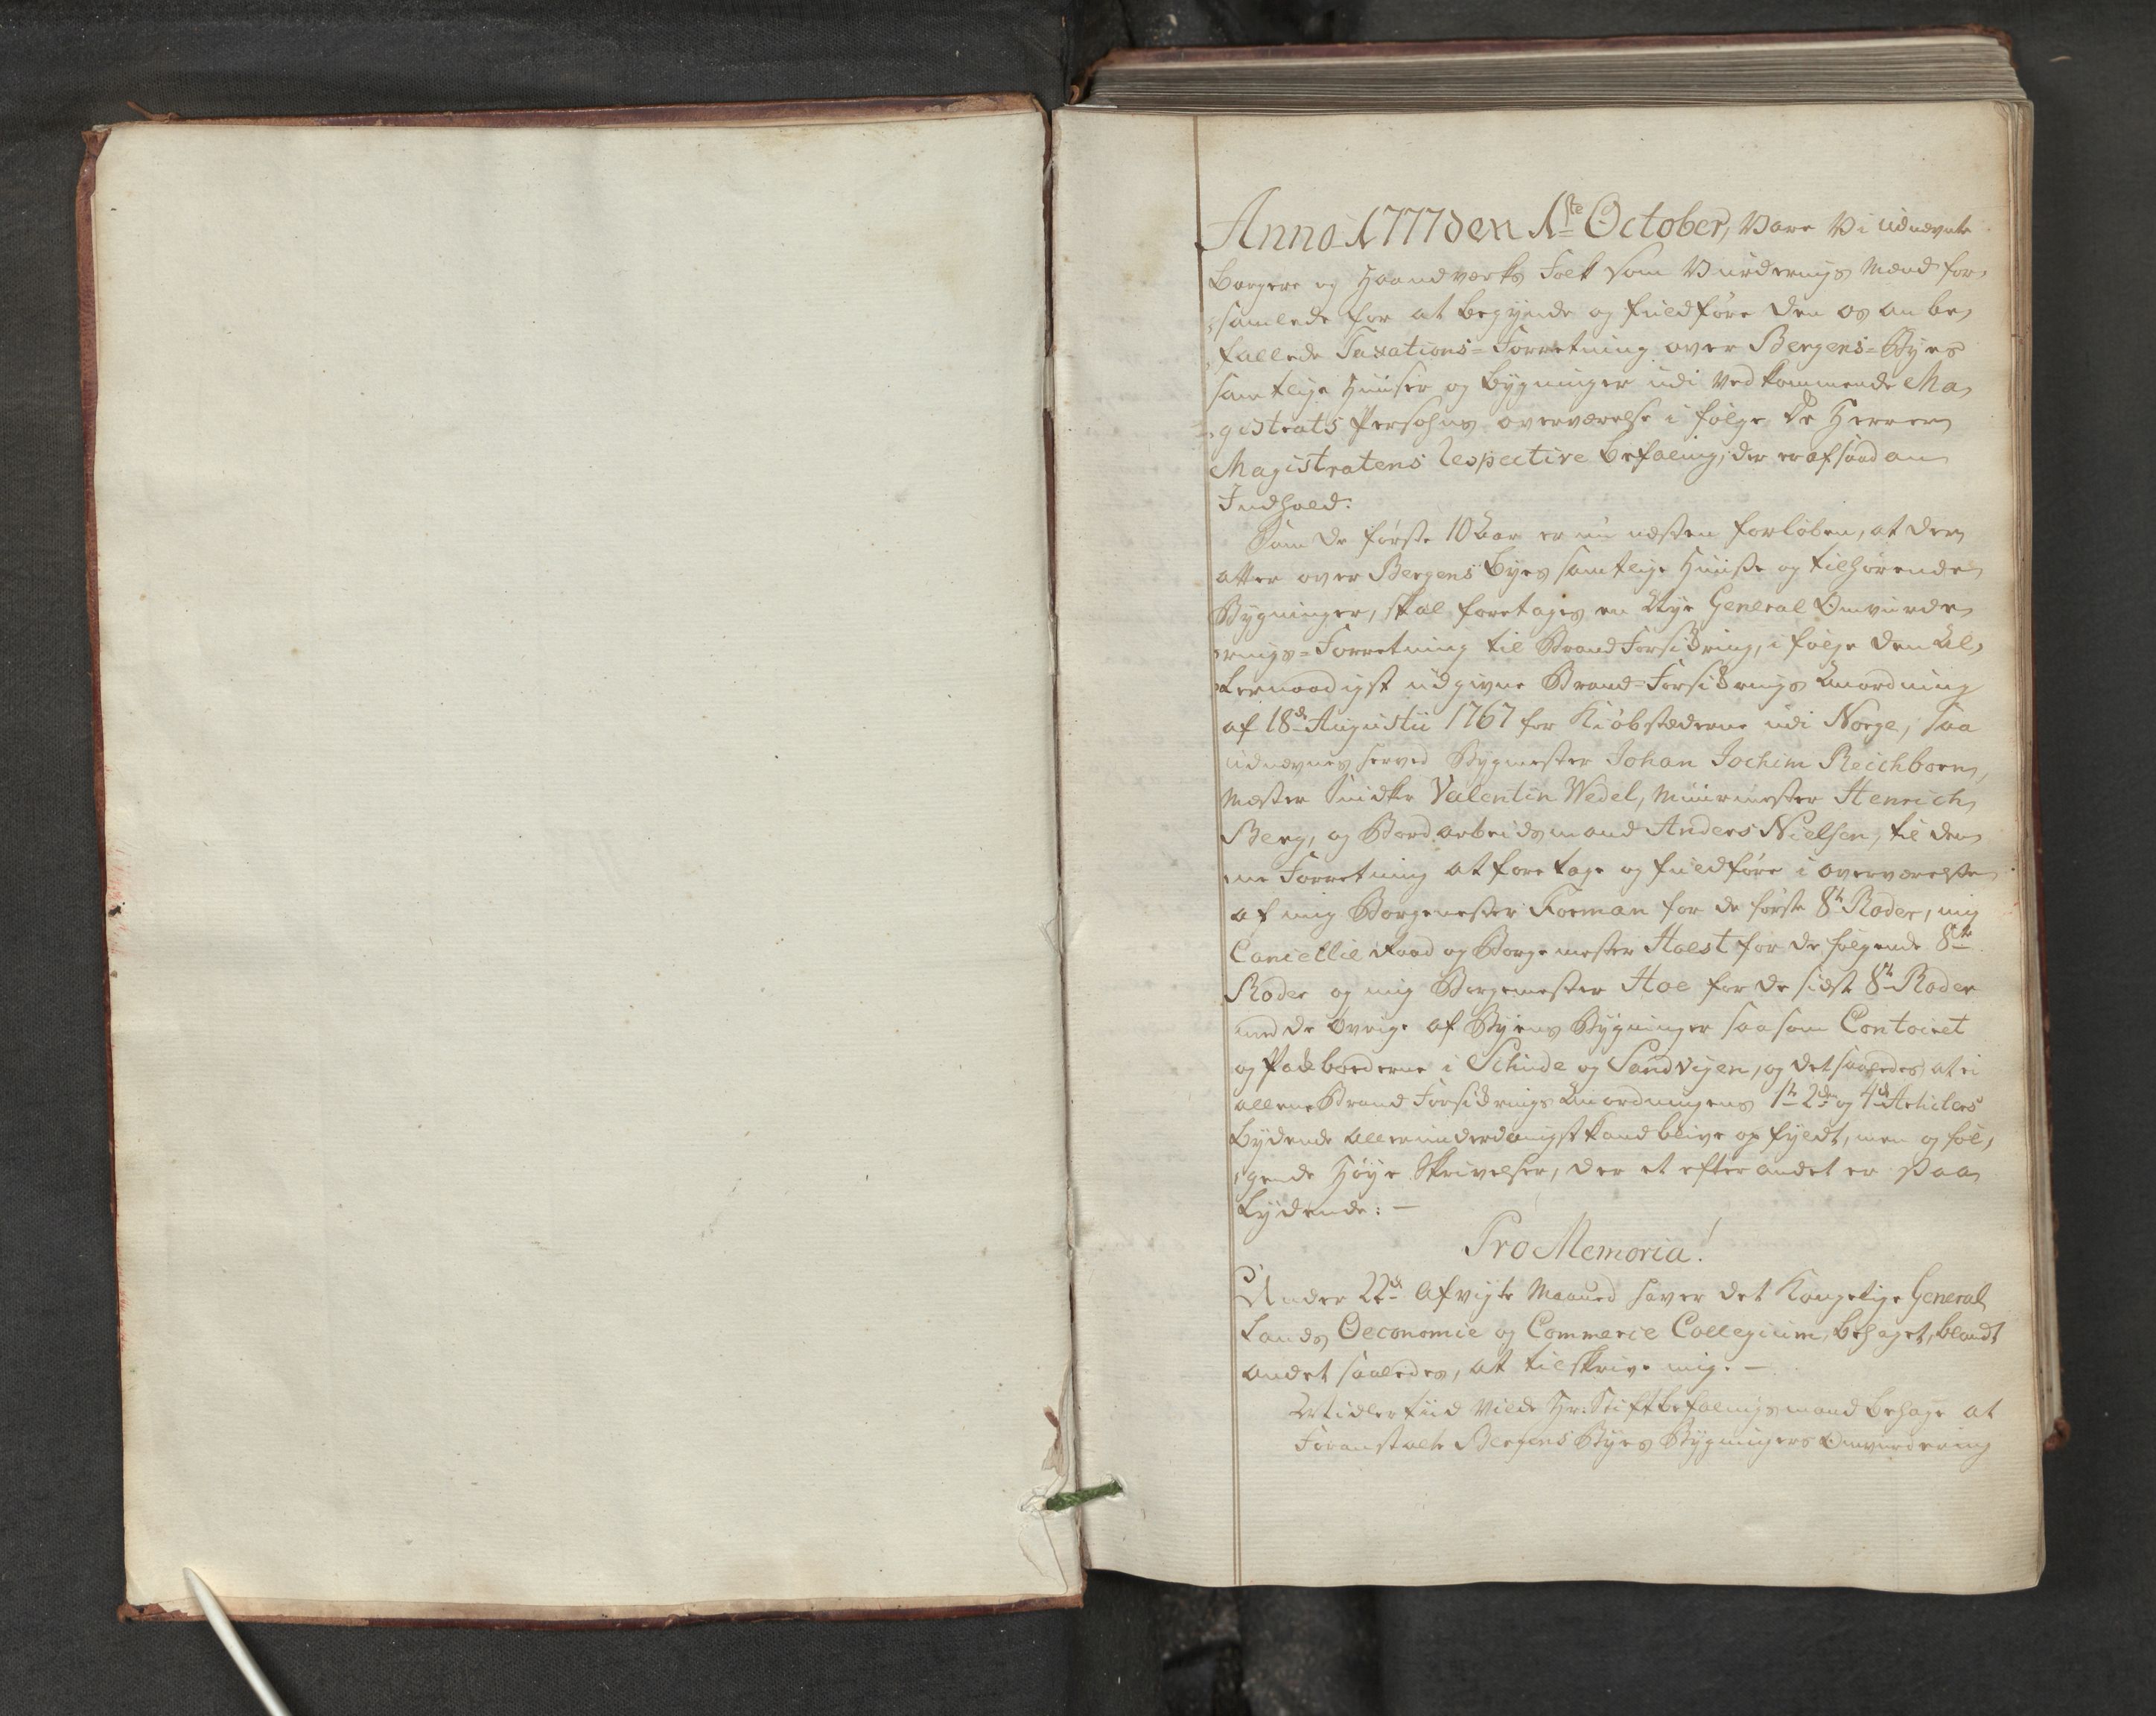 Anno 1777 den 1ste October, Vare Vi udnævnte
Borgere og Haandværks Folk som Vurderings Mænd for-
samlede for at begynde og fuldføre den os an be-
fallede Taxations-Forretning over Bergens-Byes
samtlige Huuser og bygninger udi Vedkommende Ma-
gistrats Persohns overværelse i følge De Herrer
Magistratens Respective Befaling, der er af saadan
Indhold:
Som De første 10 Aar er nu næsten forløben, at der
atter over Bergens Byes samtlige Huuse og tilhørende
Bygninger, skal foretages en Nye General Omvurde-
rings-Forretning til Brand Forsikring, i følge Den Al-
lernaadigst udgivne Brand-Forsikrings Anordning
af 18de Augustii 1767 for Kiøbstæderne udi Norge, saa
udnævnes herved Bygmester Johan Jochim Reichborn,
Mæster Snidker Valentin Wedel, Muurmester Henrich
Berg, og Bordarbeidsmand Anders Nielsen, til den-
ne Forretning at foretage og fuldføre i overværelse
af mig Borgemester Forman for de første 8te Roder, mig
Cancellie Raad og Borgemester Holst for de følgende 8te
Roder og mig Borgemester Hoe for de sidste 8te Roder
med de øvrige af Byens Bygninger saasom Contoiret
og Pakboederne i Schude og Sandvigen, og det saaledes at ei
allene Brand Forsikrings Anordningens 1te 2den og 4de Articlers
Lydende allerunderdanigst kand blive opfyldt, men og føl-
gende Høye Skrivelser, der et efter andet er saa
Lydende: —
Pro Memoria!
Under 22de afvigte Maaned haver det Kongelige General
Lands Oeconomie og Commerce Collegium, behaget, blandt
andet saaledes, at tilskrive mig. —
Midlertiid Vilde Hr: Stiftbefalingsmand behage at
Foranstalte Bergens Byes Bygningers Omvurdering